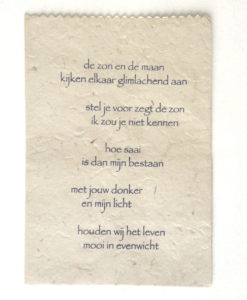 de zon en de maan
kijken elkaar glimlachend aan
stel je voor zegt de zon
ik zou je niet kennen
hoe saai
is dan mijn bestaan
met jouw donker
en mijn licht
houden wij het leven
mooi in evenwicht